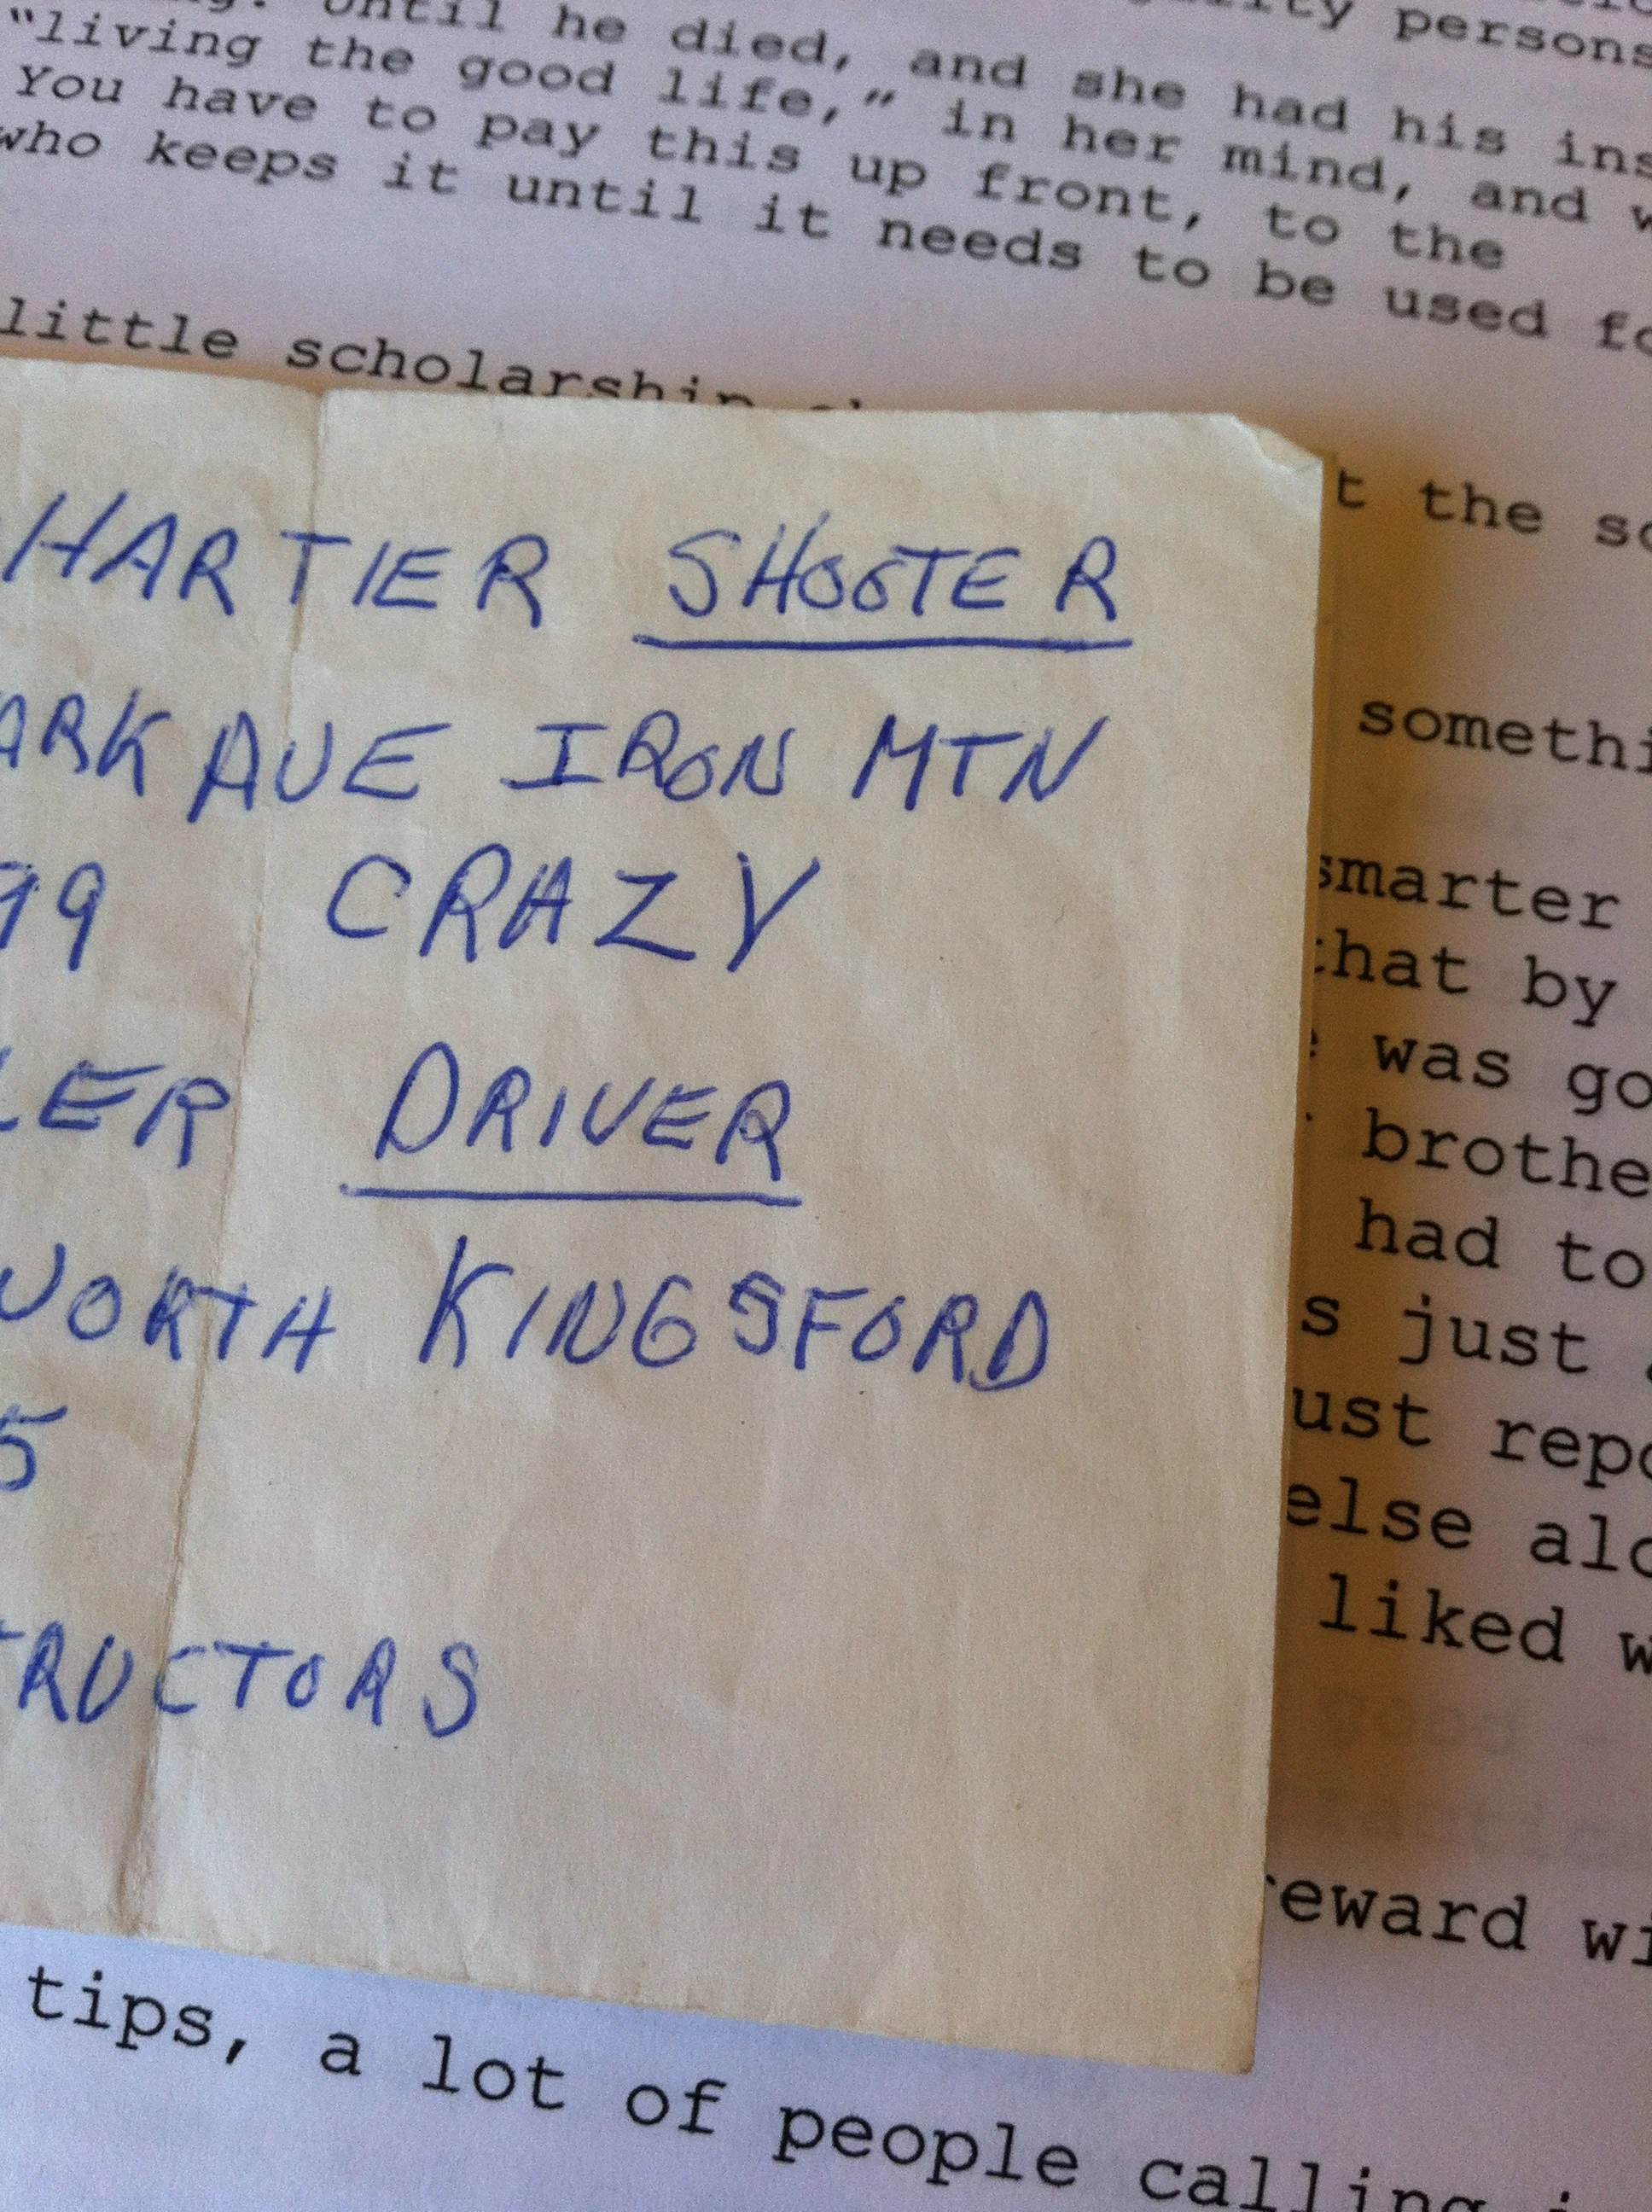 Until he died, and she had his ins
"living the good life," in her mind, and w
You have to pay this up front, to the
who keeps it until it needs to be used fo
little scholarship
HARTIER SHOOTER
ARK AVE IRON MTN
99 CRAZY
LER DRIVER
WORTH KINGSFORD
5
TRUCTORS
persons
t the so
somethi
smarter
that by
was go
brothe
had to
s just
ust repo
else alo
liked w
reward wi
tips, a lot of people calling